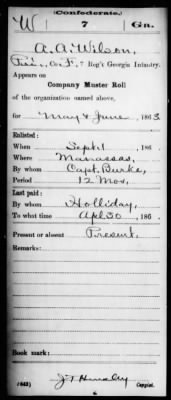 (Confederate.)
W 7 Ga.
A. A. Wilson,
Co. F, 7 Reg't Georgia Infantry.
Appears on
Company Muster Roll
of the organization named above,
for May & June, 1863
Enlisted:
When Sept 1, 186 .
Where Manassas,
By whom Capt. Burke,
Period 12 Mos.
Last paid:
By whom Holliday,
To what time Apl 30, 186 .
Present or absent Present.
Remarks:
Book mark:
(642)
Copyist.